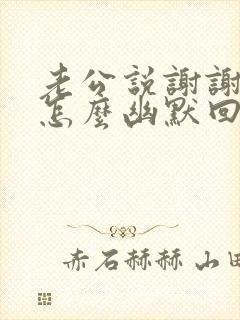 老公説謝謝
怎麼幽默回
赤石赫赫 山田